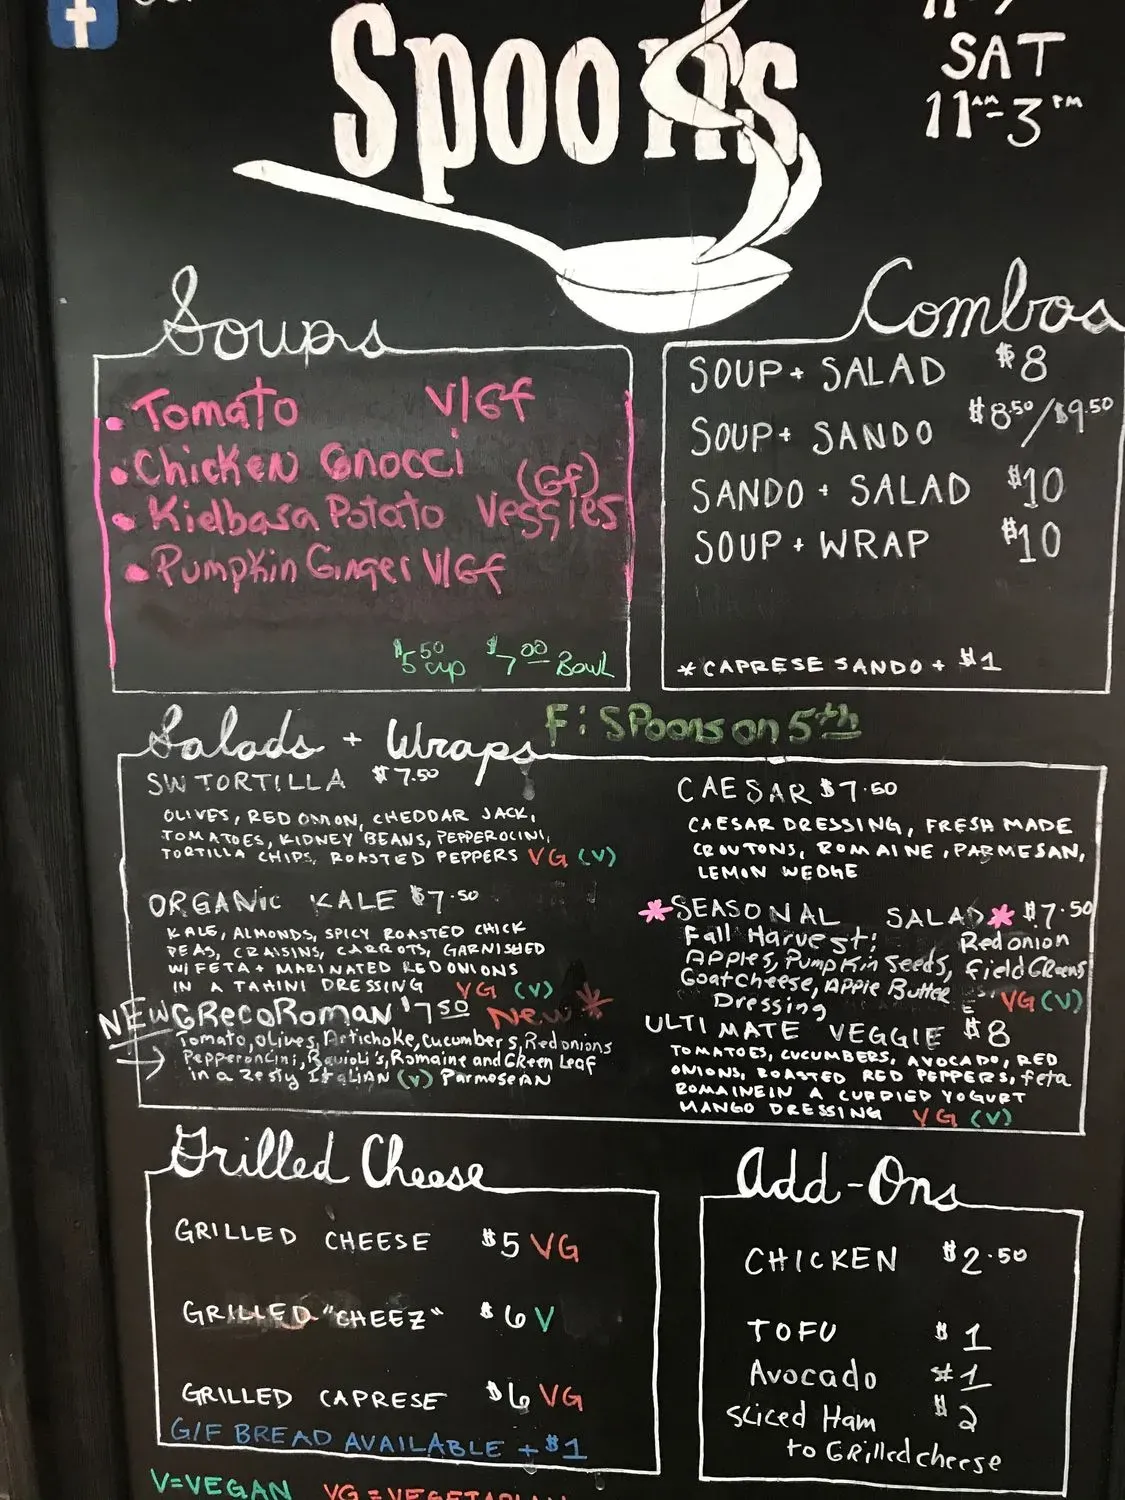 Spoons
SAT
11AM-3PM
Soups
Tomato V/Gf
Chicken Gnocci
(Gf)
Kielbasa Potato Veggies
Pumpkin Ginger V/Gf
$5.50 cup $7.00 Bowl
Combos
SOUP + SALAD $8
SOUP + SANDO $8.50/$9.50
SANDO + SALAD $10
SOUP + WRAP $10
*CAPRESE SANDO + $1
F: SPoons on 5th
Salads + Wraps
SW TORTILLA $7.50
OLIVES, RED ONION, CHEDDAR JACK,
TOMATOES, KIDNEY BEANS, PEPPEROCINI,
TORTILLA CHIPS, ROASTED PEPPERS VG (V)
ORGANIC KALE $7.50
KALE, ALMONDS, SPICY ROASTED CHICK
PEAS, CRAISINS, CARROTS, GARNISHED
W/ FETA + MARINATED RED ONIONS
IN A TAHINI DRESSING VG (V)
NEW GRecoRoman $7.50 New *
Tomato, olives, Artichoke, Cucumbers, Red onions
Pepperoncini, Ravioli's, Romaine and Green Leaf
in a Zesty Italian (V) Parmosean
CAESAR $7.50
CAESAR DRESSING, FRESH MADE
CROUTONS, ROMAINE, PARMESAN,
LEMON WEDGE
*SEASONAL SALAD* $7.50
Fall Harvest: Red onion
Apples, Pumpkin Seeds, field Greens
Goat cheese, Apple Butter
Dressing VG (V)
ULTIMATE VEGGIE $8
TOMATOES, CUCUMBERS, AVOCADO, RED
ONIONS, ROASTED RED PEPPERS, feta
ROMAINE IN A CURRIED YOGURT
MANGO DRESSING VG (V)
Grilled Cheese
GRILLED CHEESE $5 VG
GRILLED "CHEEZ" $6 V
GRILLED CAPRESE $6 VG
G/F BREAD AVAILABLE + $1
V=VEGAN VG=VEGETARIAN
Add-Ons
CHICKEN $2.50
TOFU $1
Avocado $1
Sliced Ham $2
to GRilled cheese